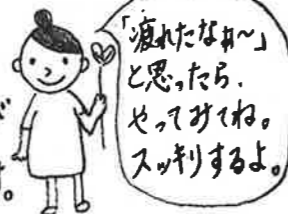 「疲れたなぁ〜」
と思ったら、
やってみてね。
スッキリするよ。
が
す。